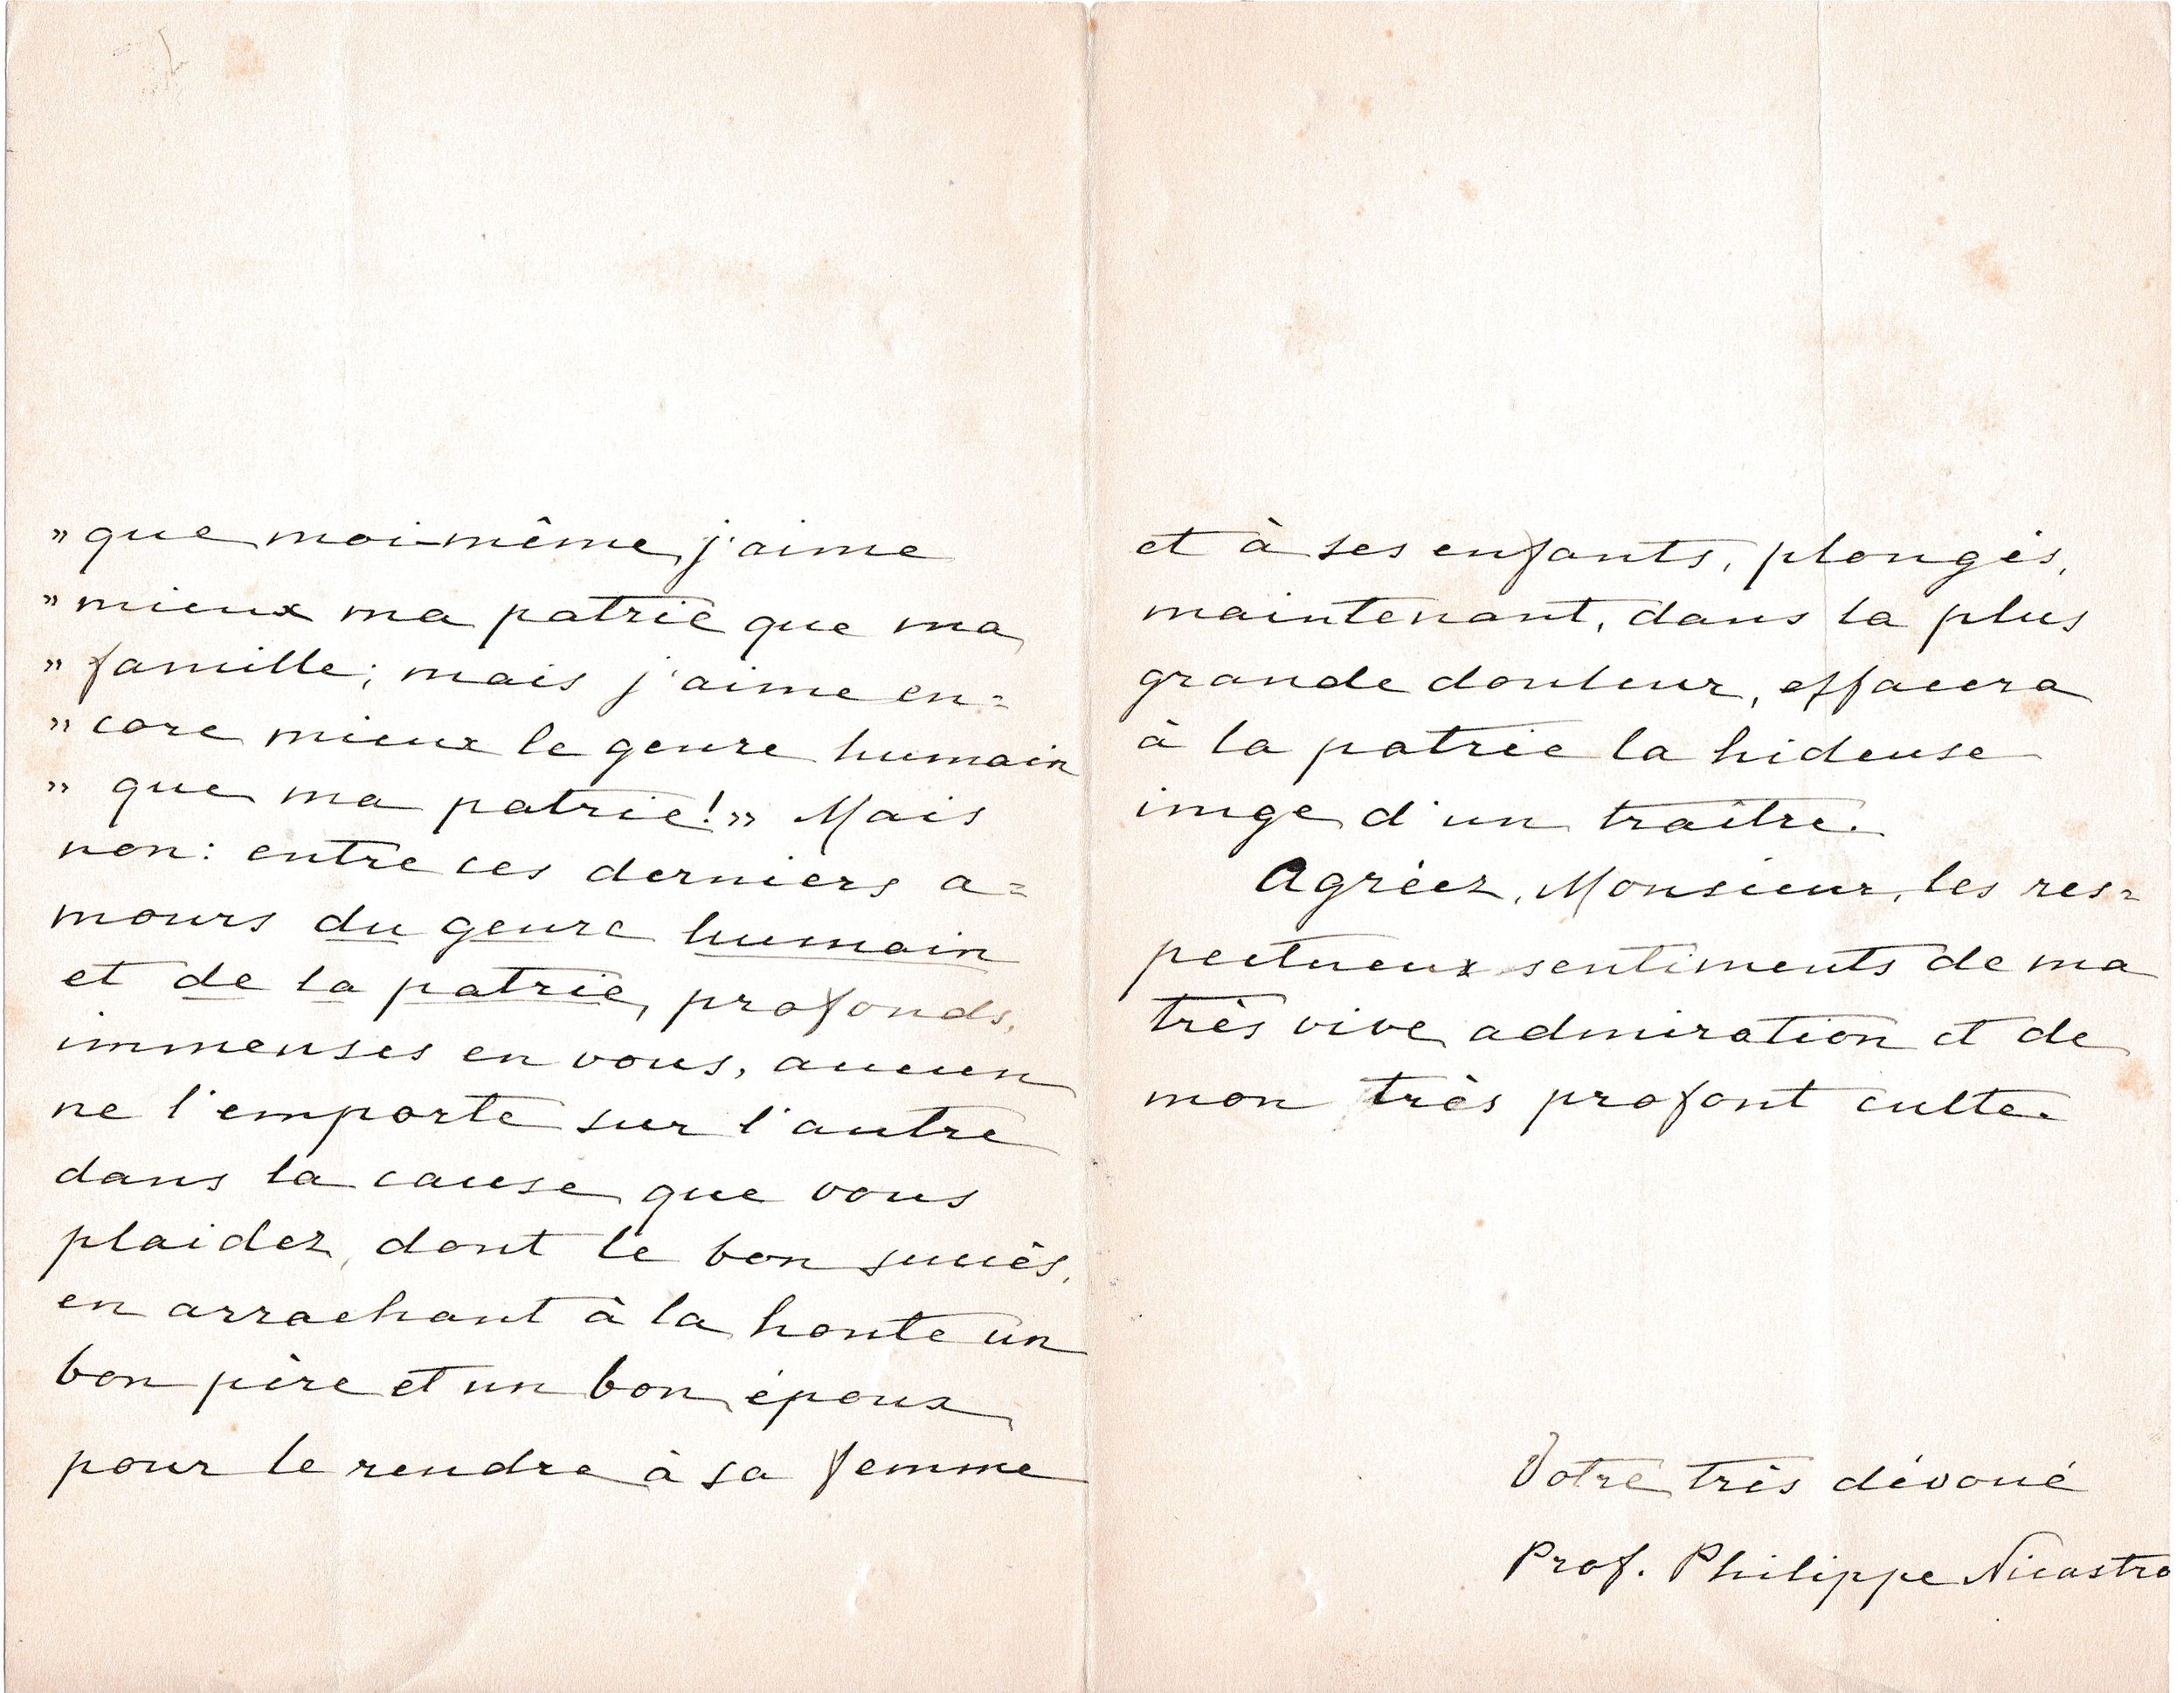 » que moi-même, j'aime
» mieux ma patrie que ma
» famille; mais j'aime en=
» core mieux le genre humain
» que ma patrie!» Mais
non: entre ces derniers a=
mours du genre humain
et de la patrie, profonds,
immenses en vous, aucun
ne l'emporte sur l'autre
dans la cause que vous
plaidez, dont le bon succès,
en arrachant à la honte un
bon père et un bon époux
pour le rendre à sa femme
et à ses enfants, plongés,
maintenant, dans la plus
grande douleur, effacera
à la patrie la hideuse
imge d'un traître.
Agréez, Monsieur, les res=
pectueux sentiments de ma
très vive admiration et de
mon très profont culte.
Votre très dévoué
Prof. Philippe Nicastro